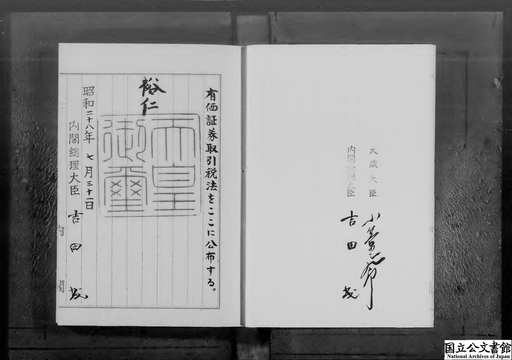 有価証券取引税法をここに公布する。
裕仁
天皇御璽
昭和二十八年七月三十一日
内閣総理大臣 吉田茂
内閣
大蔵大臣 小笠原
内閣総理大臣 吉田茂
国立公文書館
National Archives of Japan